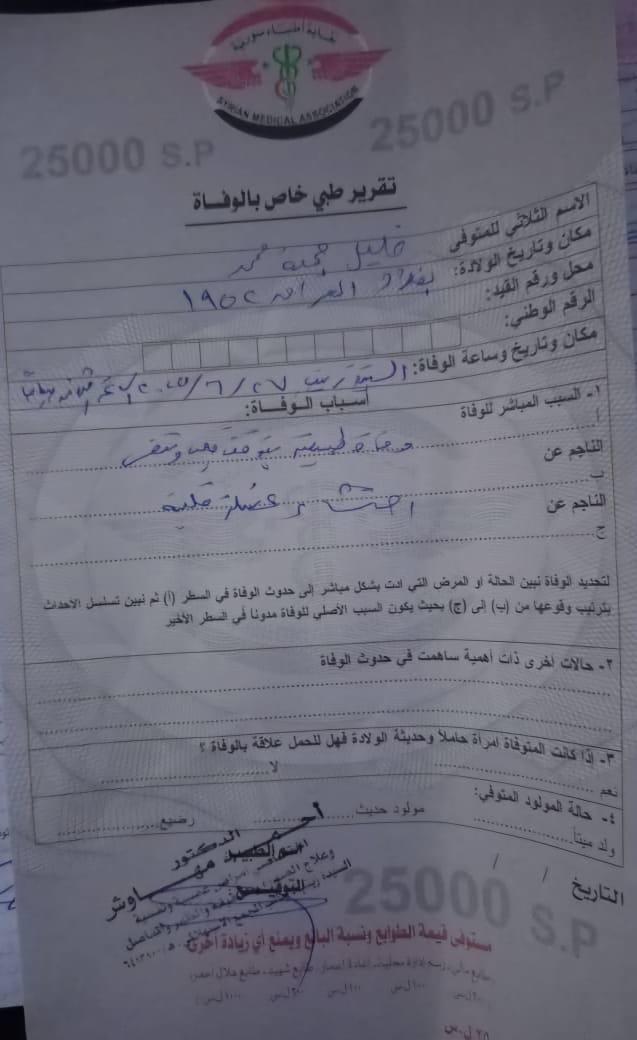 نقابة أطباء سورية
SYRIAN MEDICAL ASSOCIATION
25000 S.P
25000 S.P
تقرير طبي خاص بالوفاة
الاسم الثلاثي للمتوفى خليل جمعة محمد
مكان وتاريخ الولادة: بغداد العراق ١٩٥٢
محل ورقم القيد:
الرقم الوطني:
مكان وتاريخ وساعة الوفاة: السيدة زينب ٢٧/٦/
أسباب الوفاة:
١- السبب المباشر للوفاة
أ. وفاة طبيعية بتوقف قلب وتنفس
الناجم عن
ب. احتشاء عضلة قلبية
الناجم عن
ج.
لتحديد الوفاة نبين الحالة او المرض التي ادت بشكل مباشر إلى حدوث الوفاة في السطر (أ) ثم نبين تسلسل الاحداث
بترتيب وقوعها من (ب) إلى (ج) بحيث يكون السبب الأصلي للوفاة مدوناً في السطر الأخير
٢- حالات أخرى ذات أهمية ساهمت في حدوث الوفاة
٣- إذا كانت المتوفاة امرأة حاملاً وحديثة الولادة فهل للحمل علاقة بالوفاة ؟
نعم لا
٤- حالة المولود المتوفي:
ولد ميتاً مولود حديث رضيع
الدكتور
أحمد
اسم الطبيب
التوقيع
التاريخ / /
25000 S.P
مستوفى قيمة الطوابع ونسبة البائع ويمنع أي زيادة أخرى
٢٥ ل.س